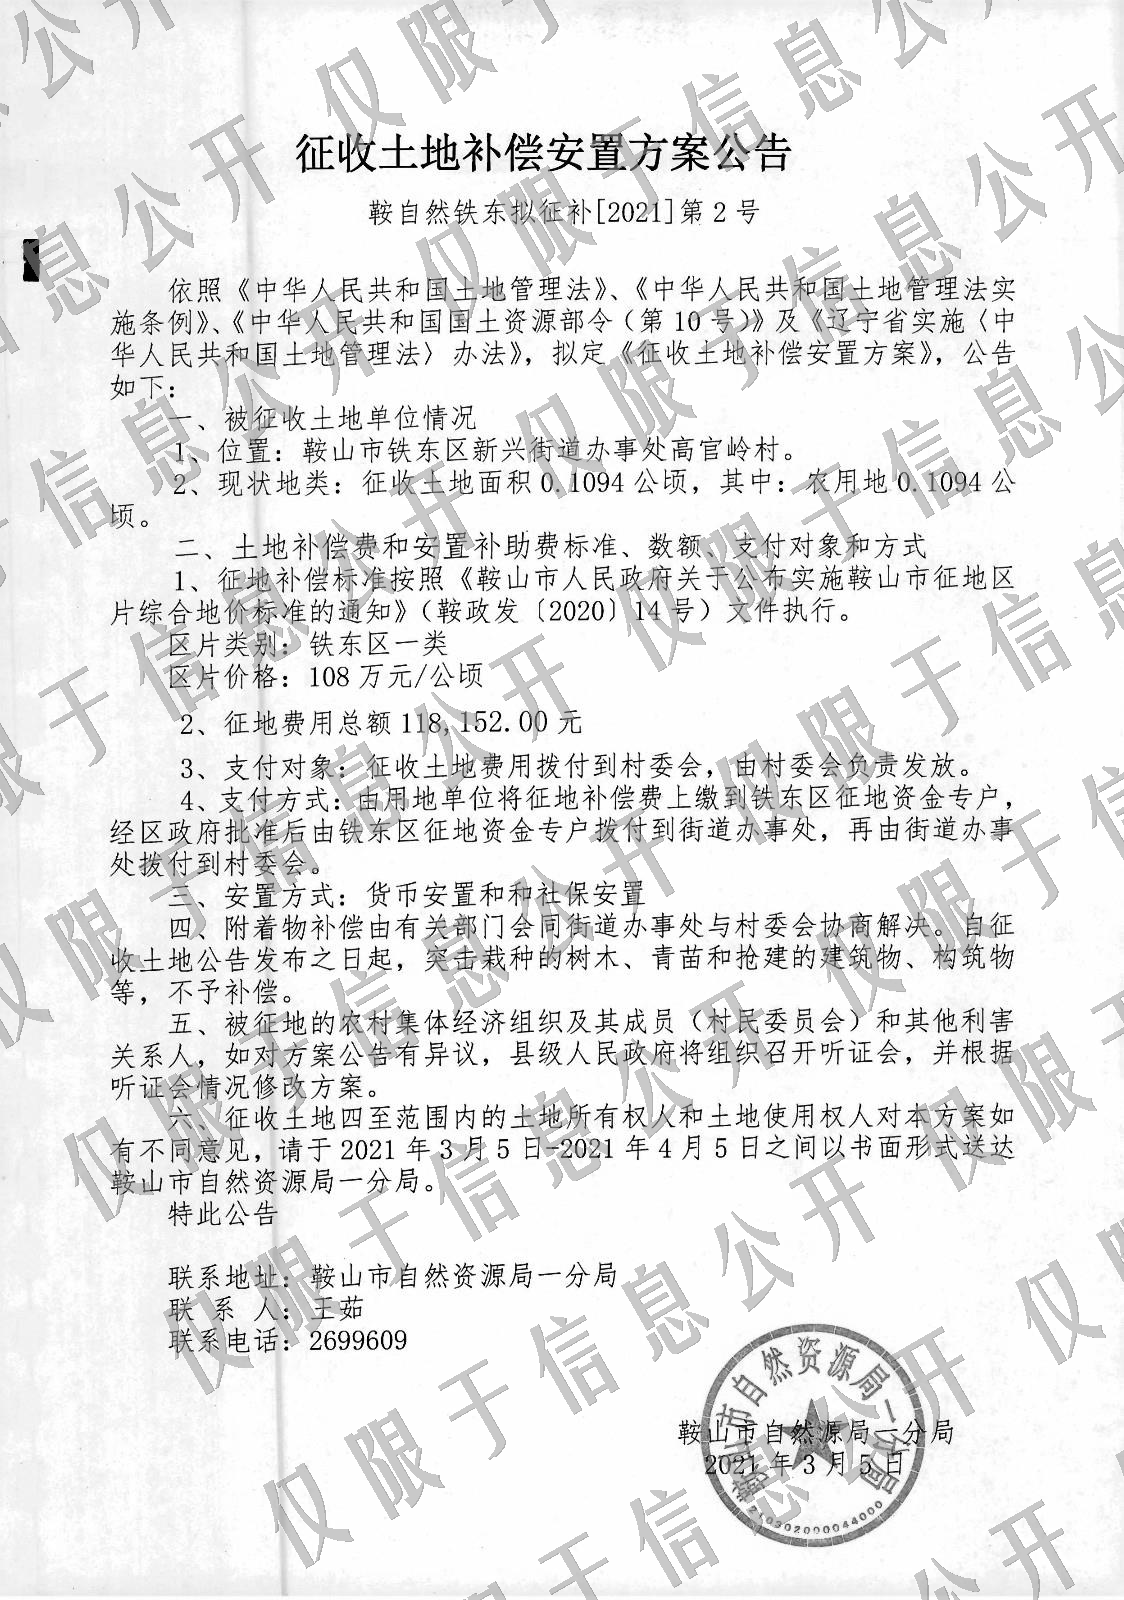 征收土地补偿安置方案公告
鞍自然铁东拟征补[2021]第2号
依照《中华人民共和国土地管理法》、《中华人民共和国土地管理法实
施条例》、《中华人民共和国国土资源部令（第10号）》及《辽宁省实施〈中
华人民共和国土地管理法〉办法》，拟定《征收土地补偿安置方案》，公告
如下：
一、被征收土地单位情况
1、位置：鞍山市铁东区新兴街道办事处高官岭村。
2、现状地类：征收土地面积0.1094公顷，其中：农用地0.1094公
顷。
二、土地补偿费和安置补助费标准、数额、支付对象和方式
1、征地补偿标准按照《鞍山市人民政府关于公布实施鞍山市征地区
片综合地价标准的通知》（鞍政发〔2020〕14号）文件执行。
区片类别：铁东区一类
区片价格：108万元/公顷
2、征地费用总额118,152.00元
3、支付对象：征收土地费用拨付到村委会，由村委会负责发放。
4、支付方式：由用地单位将征地补偿费上缴到铁东区征地资金专户，
经区政府批准后由铁东区征地资金专户拨付到街道办事处，再由街道办事
处拨付到村委会。
三、安置方式：货币安置和种社保安置
四、附着物补偿由有关部门会同街道办事处与村委会协商解决。自征
收土地公告发布之日起，突击栽种的树木、青苗和抢建的建筑物、构筑物
等，不予补偿。
五、被征地的农村集体经济组织及其成员（村民委员会）和其他利害
关系人，如对方案公告有异议，县级人民政府将组织召开听证会，并根据
听证会情况修改方案。
六、征收土地四至范围内的土地所有权人和土地使用权人对本方案如
有不同意见，请于2021年3月5日-2021年4月5日之间以书面形式送达
鞍山市自然资源局一分局。
特此公告
联系地址：鞍山市自然资源局一分局
联 系 人：王茹
联系电话：2699609
鞍山市自然资源局一分局
2021年3月5日
鞍山市自然资源局一分局
210302000044000
仅限于信息公开